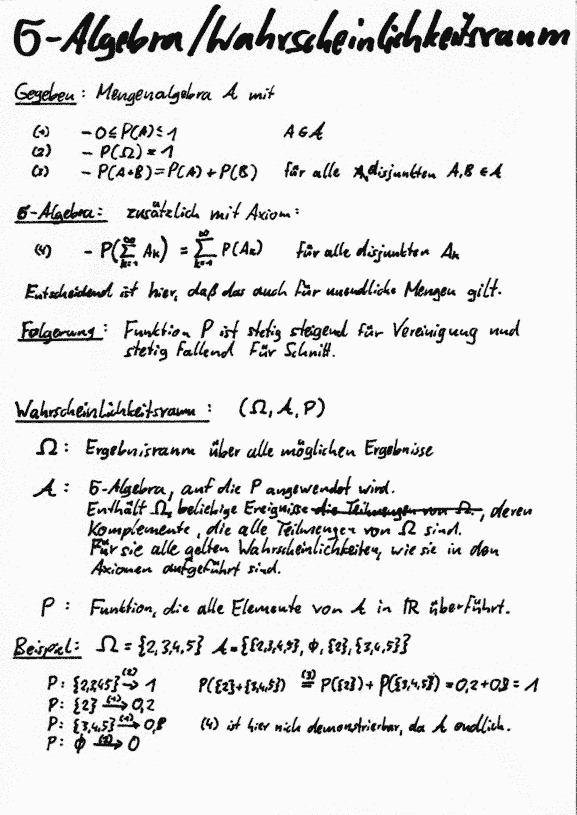 σ-Algebra/Wahrscheinlichkeitsraum
Gegeben: Mengenalgebra A mit
(1) - 0≤P(A)≤1 A∈A
(2) - P(Ω)=1
(3) - P(A+B)=P(A)+P(B) für alle disjunkten A,B∈A
σ-Algebra: zusätzlich mit Axiom:
(4) - P(∑_{k=1}^∞ A_k) = ∑_{k=1}^∞ P(A_k) für alle disjunkten A_k
Entscheidend ist hier, daß das auch für unendliche Mengen gilt.
Folgerung: Funktion P ist stetig steigend für Vereinigung und
stetig fallend für Schnitt.
Wahrscheinlichkeitsraum: (Ω, A, P)
Ω: Ergebnisraum über alle möglichen Ergebnisse
A: σ-Algebra, auf die P angewendet wird.
Enthält Ω, beliebige Ereignisse die Teilmengen von Ω, deren
Komplemente, die alle Teilmengen von Ω sind.
Für sie alle gelten Wahrscheinlichkeiten, wie sie in den
Axiomen aufgeführt sind.
P: Funktion, die alle Elemente von A in ℝ überführt.
Beispiel: Ω={2,3,4,5} A={{2,3,4,5}, ϕ, {2}, {3,4,5}}
P: {2,3,4,5} →(2) 1 P({2}+{3,4,5}) =(3) P({2})+P({3,4,5})=0,2+0,8=1
P: {2} →(1) 0,2
P: {3,4,5} →(1) 0,8 (4) ist hier nich demonstrierbar, da A endlich.
P: ϕ → 0